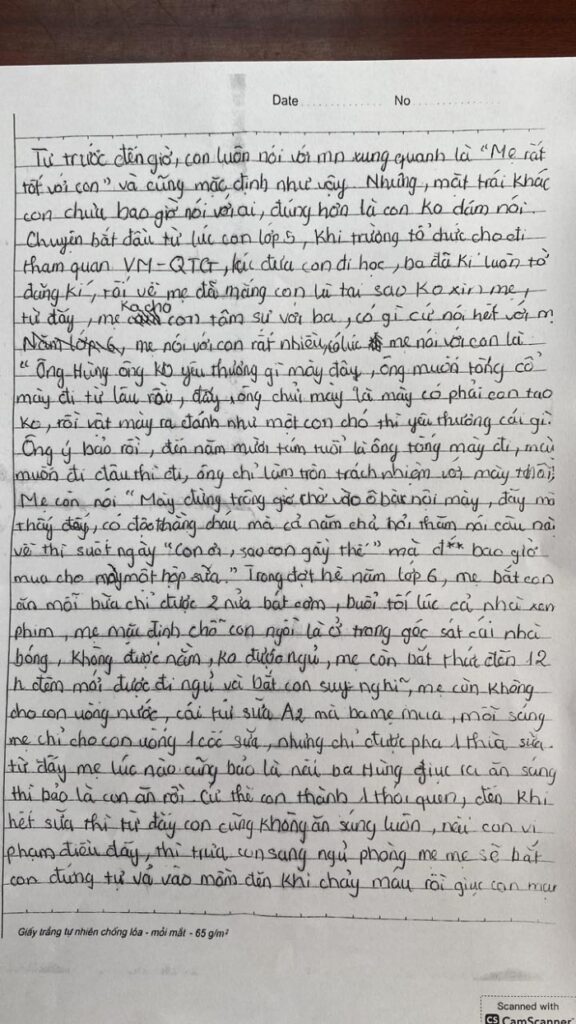 Date No
Từ trước đến giờ, con luôn nói với mn xung quanh là "Mẹ rất
tốt với con" và cũng mặc định như vậy. Nhưng, mặt trái khác
con chưa bao giờ nói với ai, đúng hơn là con ko dám nói.
Chuyện bắt đầu từ lúc con lớp 5, khi trường tổ chức cho đi
tham quan VM-QTG, lúc đưa con đi học, ba đã kí luôn tờ
đăng kí, rồi về mẹ đã mắng con là tại sao ko xin mẹ,
từ đấy, mẹ ko cho con tâm sự với ba, có gì cứ nói hết với m
Năm lớp 6, mẹ nói với con rất nhiều, có lúc mẹ nói với con là
"Ông Hùng ông ko yêu thương gì mày đây, ông muốn tống cổ
mày đi từ lâu rồi, đấy, ông chửi mày là mày có phải con tao
ko, rồi vật mày ra đánh như một con chó thì yêu thương cái gì.
Ông ý bảo rồi, đến năm mười tám tuổi là ông tống mày đi, mày
muốn đi đâu thì đi, ông chỉ làm tròn trách nhiệm với mày thôi"
Mẹ còn nói "Mày đừng trông giờ chờ vào ô bà nội mày, đấy mà
thấy đấy, có đứa thằng cháu mà cả năm chả hỏi thăm nói câu nào
về thì suốt ngày "con ơi, sao con gầy thế" mà đ** bao giờ
mua cho mày một hộp sữa." Trong đợt hè năm lớp 6, mẹ bắt con
ăn mỗi bữa chỉ được 2 nửa bát cơm, buổi tối lúc cả nhà xem
phim, mẹ mặc định chỗ con ngồi là ở trong góc sát cái nhà
bóng, không được nằm, ko được ngủ, mẹ còn bắt thức đến 12
h đêm mới được đi ngủ và bắt con suy nghĩ, mẹ còn không
cho con uống nước, cái túi sữa A2 mà ba mẹ mua, mỗi sáng
mẹ chỉ cho con uống 1 cốc sữa, nhưng chỉ được pha 1 thìa sữa.
từ đấy mẹ lúc nào cũng bảo là nếu ba Hùng giục ra ăn sáng
thì bảo là con ăn rồi. Cứ thế con thành 1 thói quen, đến khi
hết sữa thì từ đấy con cũng không ăn sáng luôn, nếu con vi
phạm điều đấy, thì trưa con sang ngủ phòng mẹ mẹ sẽ bắt
con đứng tự vả vào mồm đến khi chảy máu rồi giục con
Giấy trắng tự nhiên chống lóa - mỏi mắt - 65 g/m²
Scanned with
CS CamScanner